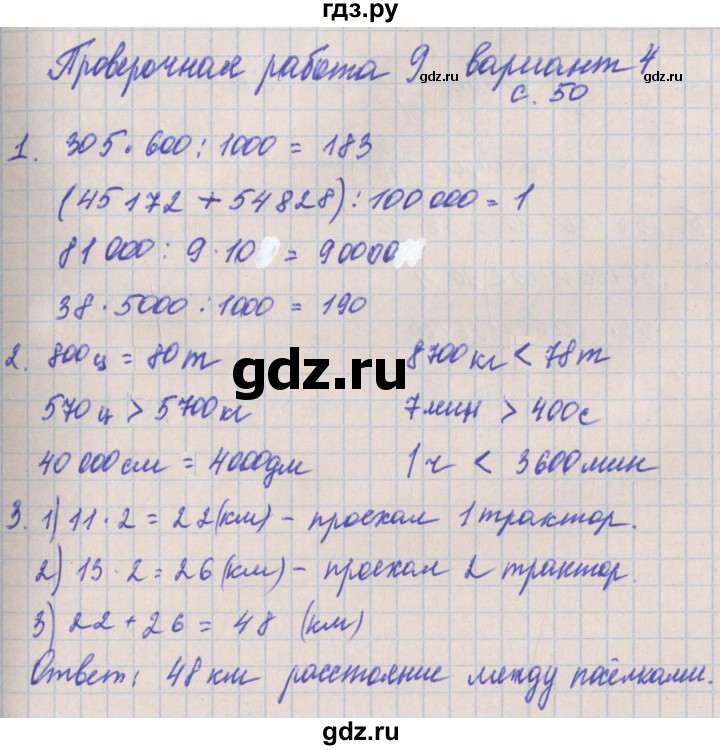 гдз.ру
Проверочная работа 9 вариант 4
gdz.ru gdz.ru
с. 50
1. 305 · 600 : 1000 = 183
(45172 + 54828) : 100 000 = 1
81 000 : 9 · 10 = 90000
38 · 5000 : 1000 = 190
2. 800 ц = 80 т 8700 кг < 78 т
gdz.ru
570 ц > 5700 кг 7 мин > 400 с
40 000 см = 4000 дм 1 ч < 3600 мин
3. 1) 11 · 2 = 22 (км) - проехал 1 трактор.
2) 13 · 2 = 26 (км) - проехал 2 трактор.
3) 22 + 26 = 48 (км)
Ответ: 48 км расстояние между посёлками.
gdz.ru